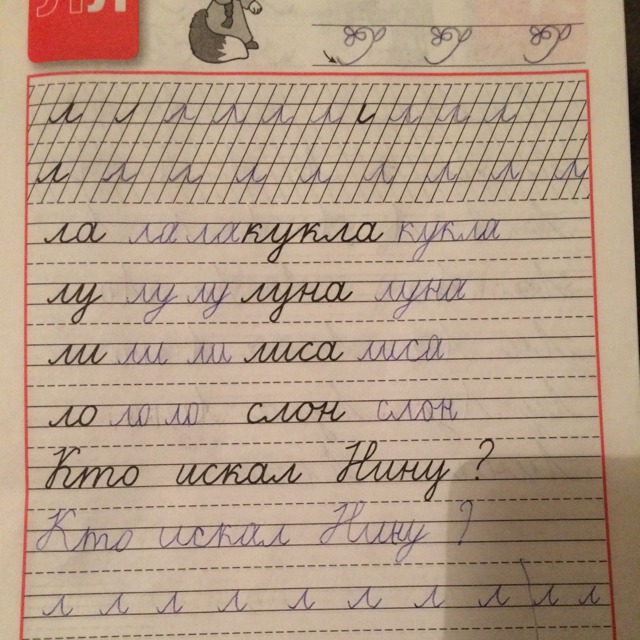 Лл
л л л л л л л л л л
л л л л л л л л л
ла ла ла кукла кукла
лу лу лу луна луна
ли ли ли лиса лиса
ло ло ло слон слон
Кто искал Нину ?
Кто искал Нину ?
л л л л л л л л л л